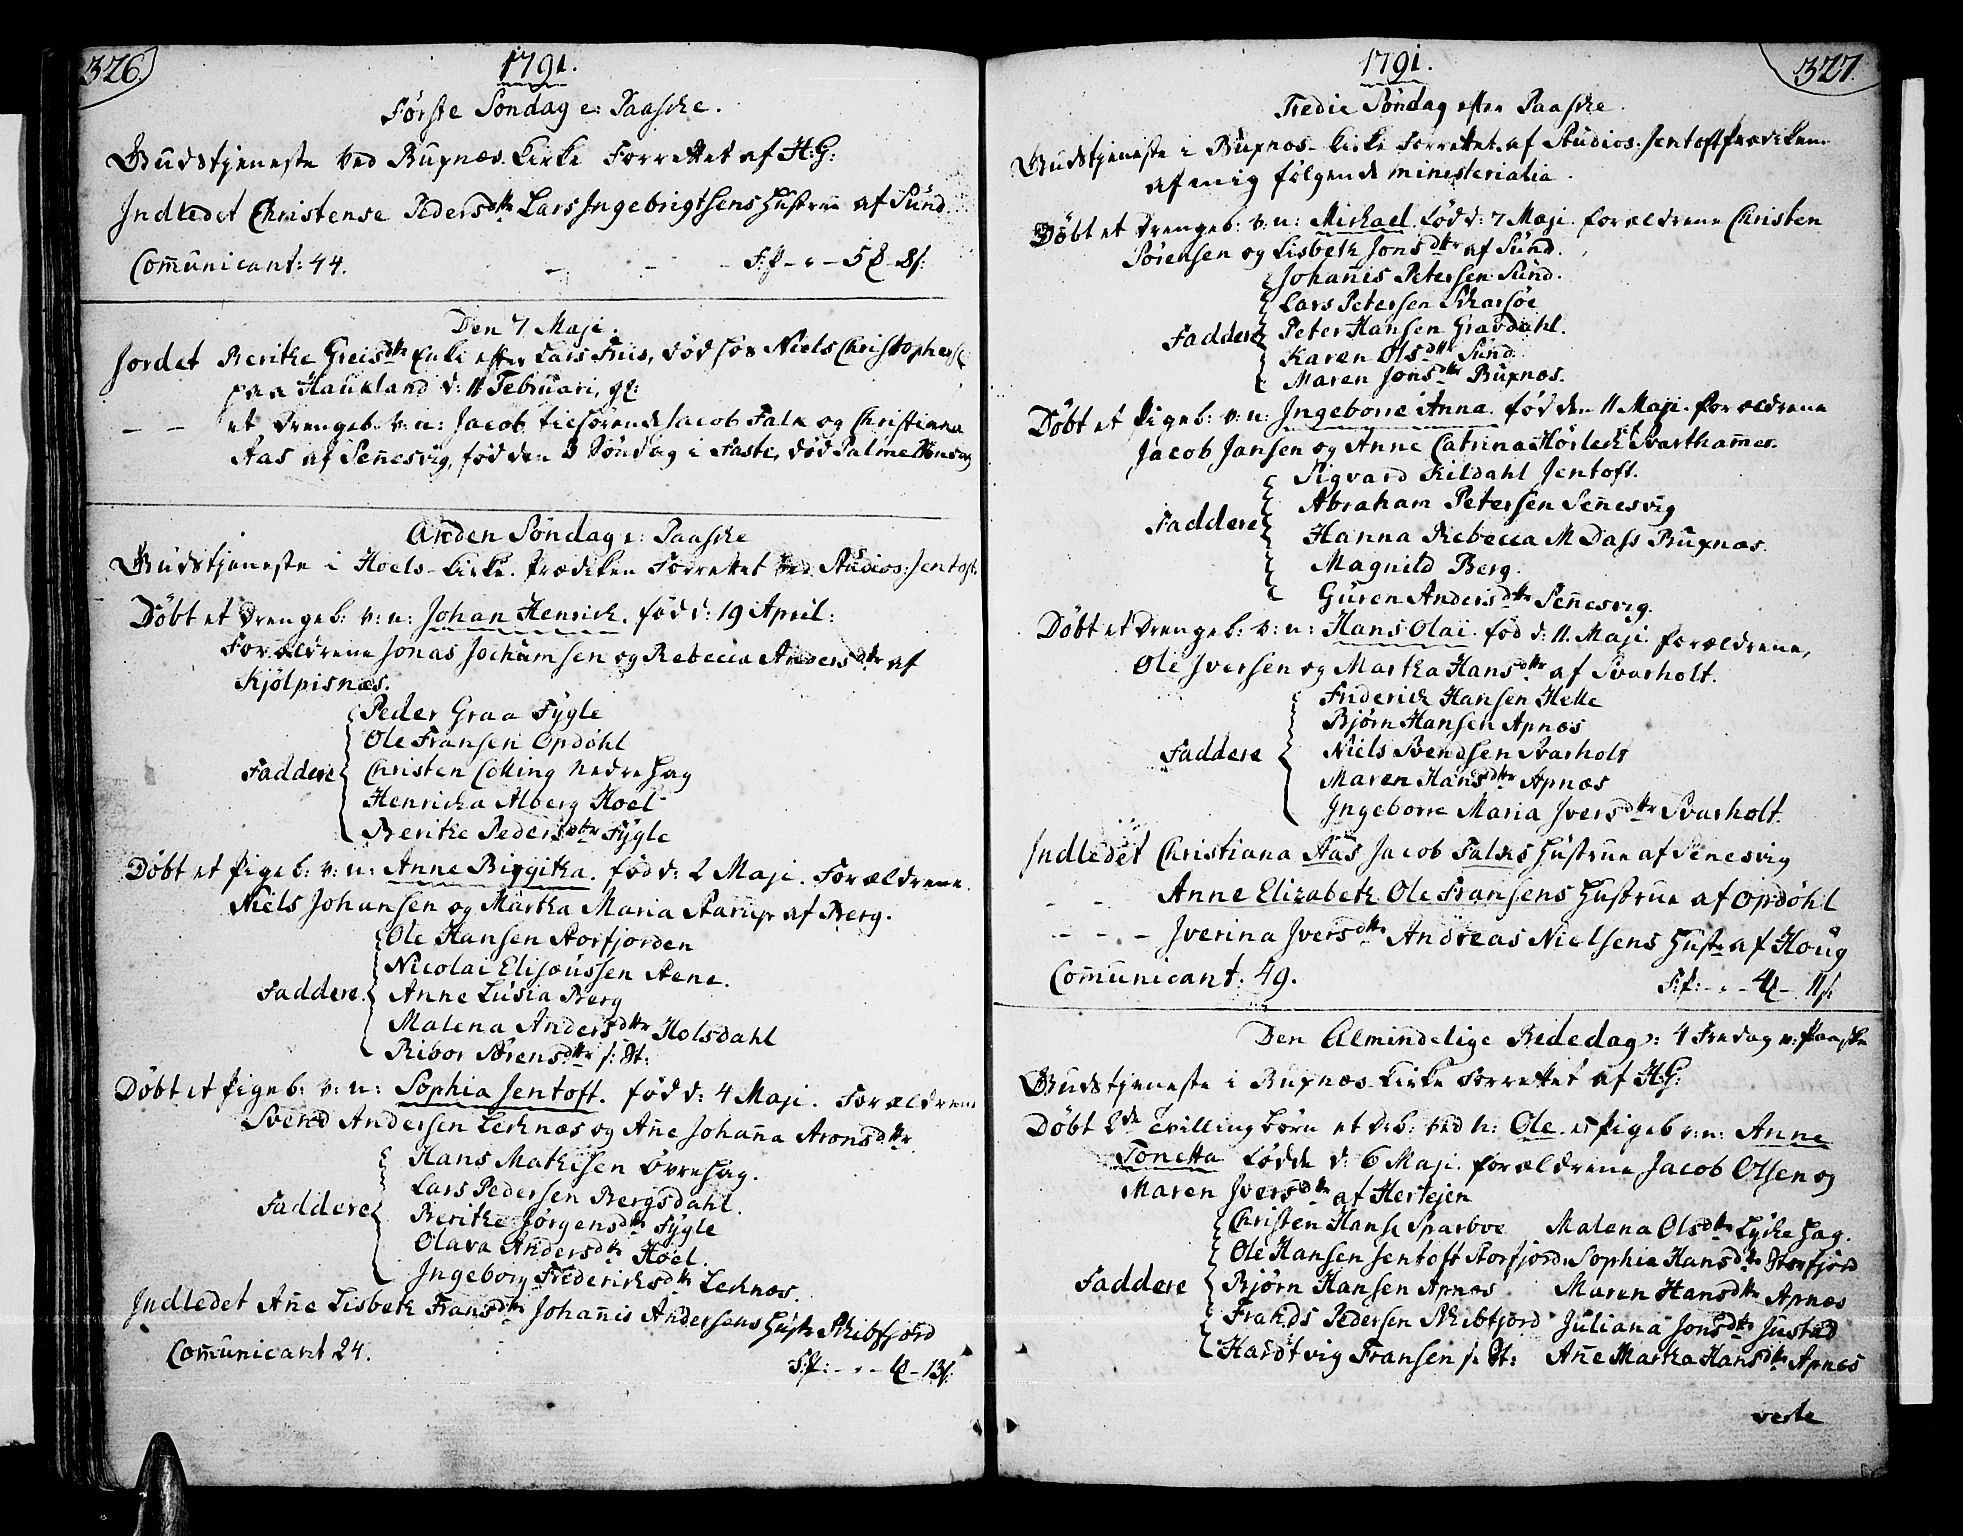 326.
1791.
Første Søndag e: Paaske.
Gudstjeneste ved Buxnæs Kirke Forrettet af H:G:
Indledet Christense Pedersdtr Lars Ingebrigtsens Hustrue af Sund.
Com̄unicant: 44.
Den 7 Maji.
Jordet Berithe Greisdtr Enke efter Lars Friis, død hos Niels Christophers:
paa Haukland d: 11 Februari,
— — et Drengeb: v: n: Jacob tilhørende Jacob Falk og Christianna
Aas af Sen̄esvig, fød den 3 Søndag i Faste, død Palmesøndag
Anden Søndag e: Paaske
Gudstjeneste i Hoels-Kirke. Prædiken Forrettet ved Studios: Jentoft.
Døbt et Drengeb: v: n: Johan Henrich. fød d: 19 April:
Forældrene Jonas Jochumsen og Rebecca Andersdtr af
Kjølpisnæs.
Peder Graa Fygle
Ole Fransen Opdøhl
Faddere Christen Colling Nedre Hag
Henricka Alberg Hoel
Berithe Pedersdtr Fygle
Døbt et Pigeb: v: n: Anne Birgitha. fød d: 2 Maji. Forældrene
Niels Johansen og Martha Maria Aarup af Berg.
Ole Hansen Storfjorden
Nicolai Elisæussen Steene.
Faddere Anne Lusia Berg
Malena Andersdtr Holsdahl
Ribor Sørensdtr s: St:
Døbt et Pigeb: v: n: Sophia Jentoft. fød d: 4 Maji. Forældrene
Svend Andersen Lechnæs og An̄e Johan̄a Aronsdtr.
Hans Mathisen Øvre Hag.
Lars Pedersen Bergsdahl.
Faddere Berithe Jørgensdtr Fygle
Olava Andersdtr Hoel.
Ingeborg Frederichsdtr Lechnæs.
Indledet An̄e Lisbeth Fransdtr Johan̄is Andersens Hustr Skibfjord
Com̄unicant 24.
327.
1791.
Tredie Søndag efter Paaske.
Gudstjeneste i Buxnæs-Kirke Forrettet af Studios: Jentoft Prædiken
af mig følgende ministerialia.
Døbt et Drengeb: v: n: Michael. fød d: 7 Maji. forældrene Christen
Sørensen og Lisbeth Jonsdtr af Sund.
Johan̄is Petersen Sund.
Lars Petersen Skarsøe
Faddere Peter Hansen Gravdahl.
Karen Olsdtr Sund.
Maren Jonsdtr Buxnæs.
Døbt et Pigeb: v: n: Ingeborre Anna. fød den 11 Maji. forældrene
Jacob Jansen og Anne Catrina Hørlech af Svartham̄er.
Sigvard Kildahl Jentoft.
Abraham Petersen Sen̄esvig
Faddere Hanna Rebecca M Dass Buxnæs.
Magnild Berg.
Guren Andersdtr Sen̄esvig.
Døbt et Drengeb: v: n: Hans Olai. fød d: 11. Maji. forældrene,
Ole Iversen og Martha Hansdtr af Svarholt.
Friderich Hansen Helle
Bjørn Hansen Apnæs
Faddere Niels Svendsen Svarholt
Maren Hansdtr Apnæs
Ingeborre Maria Iversdtr Svarholt.
Indledet Christiana Aas Jacob Falchs Hustrue af Senesvig
— — Anne Elizabeth Ole Fransens Hustrue af Opdøhl
— — — Iverina Iversdtr Andreas Nielsens Hustr af Houg
Com̄unicant: 49.
Den Almindelige Bededag: 4 Fredag e: Paaske
Gudstjeneste i Buxnæs-Kirke Forrettet af H:G:
Døbt 2de Tvillingbørn et D:b: ved n: Ole et Pigeb v: n: Anne
Tonetta Fødde d: 6 Maji. forældrene Jacob Olsen og
Maren Iversdtr af Hertejen
Christen Hans: Sparboe Malena Olsdtr Lykehag.
Ole Hansen Jentoft Storfjord: Sophia Hansdtr Storfjord
Faddere Bjørn Hansen Apnæs Maren Hansdtr Apnæs
Frands Pedersen Skibfjord Juliana Jonsdtr Justad
Hardtvig Fransen s: St: An̄e Martha Hansdtr Apnæs